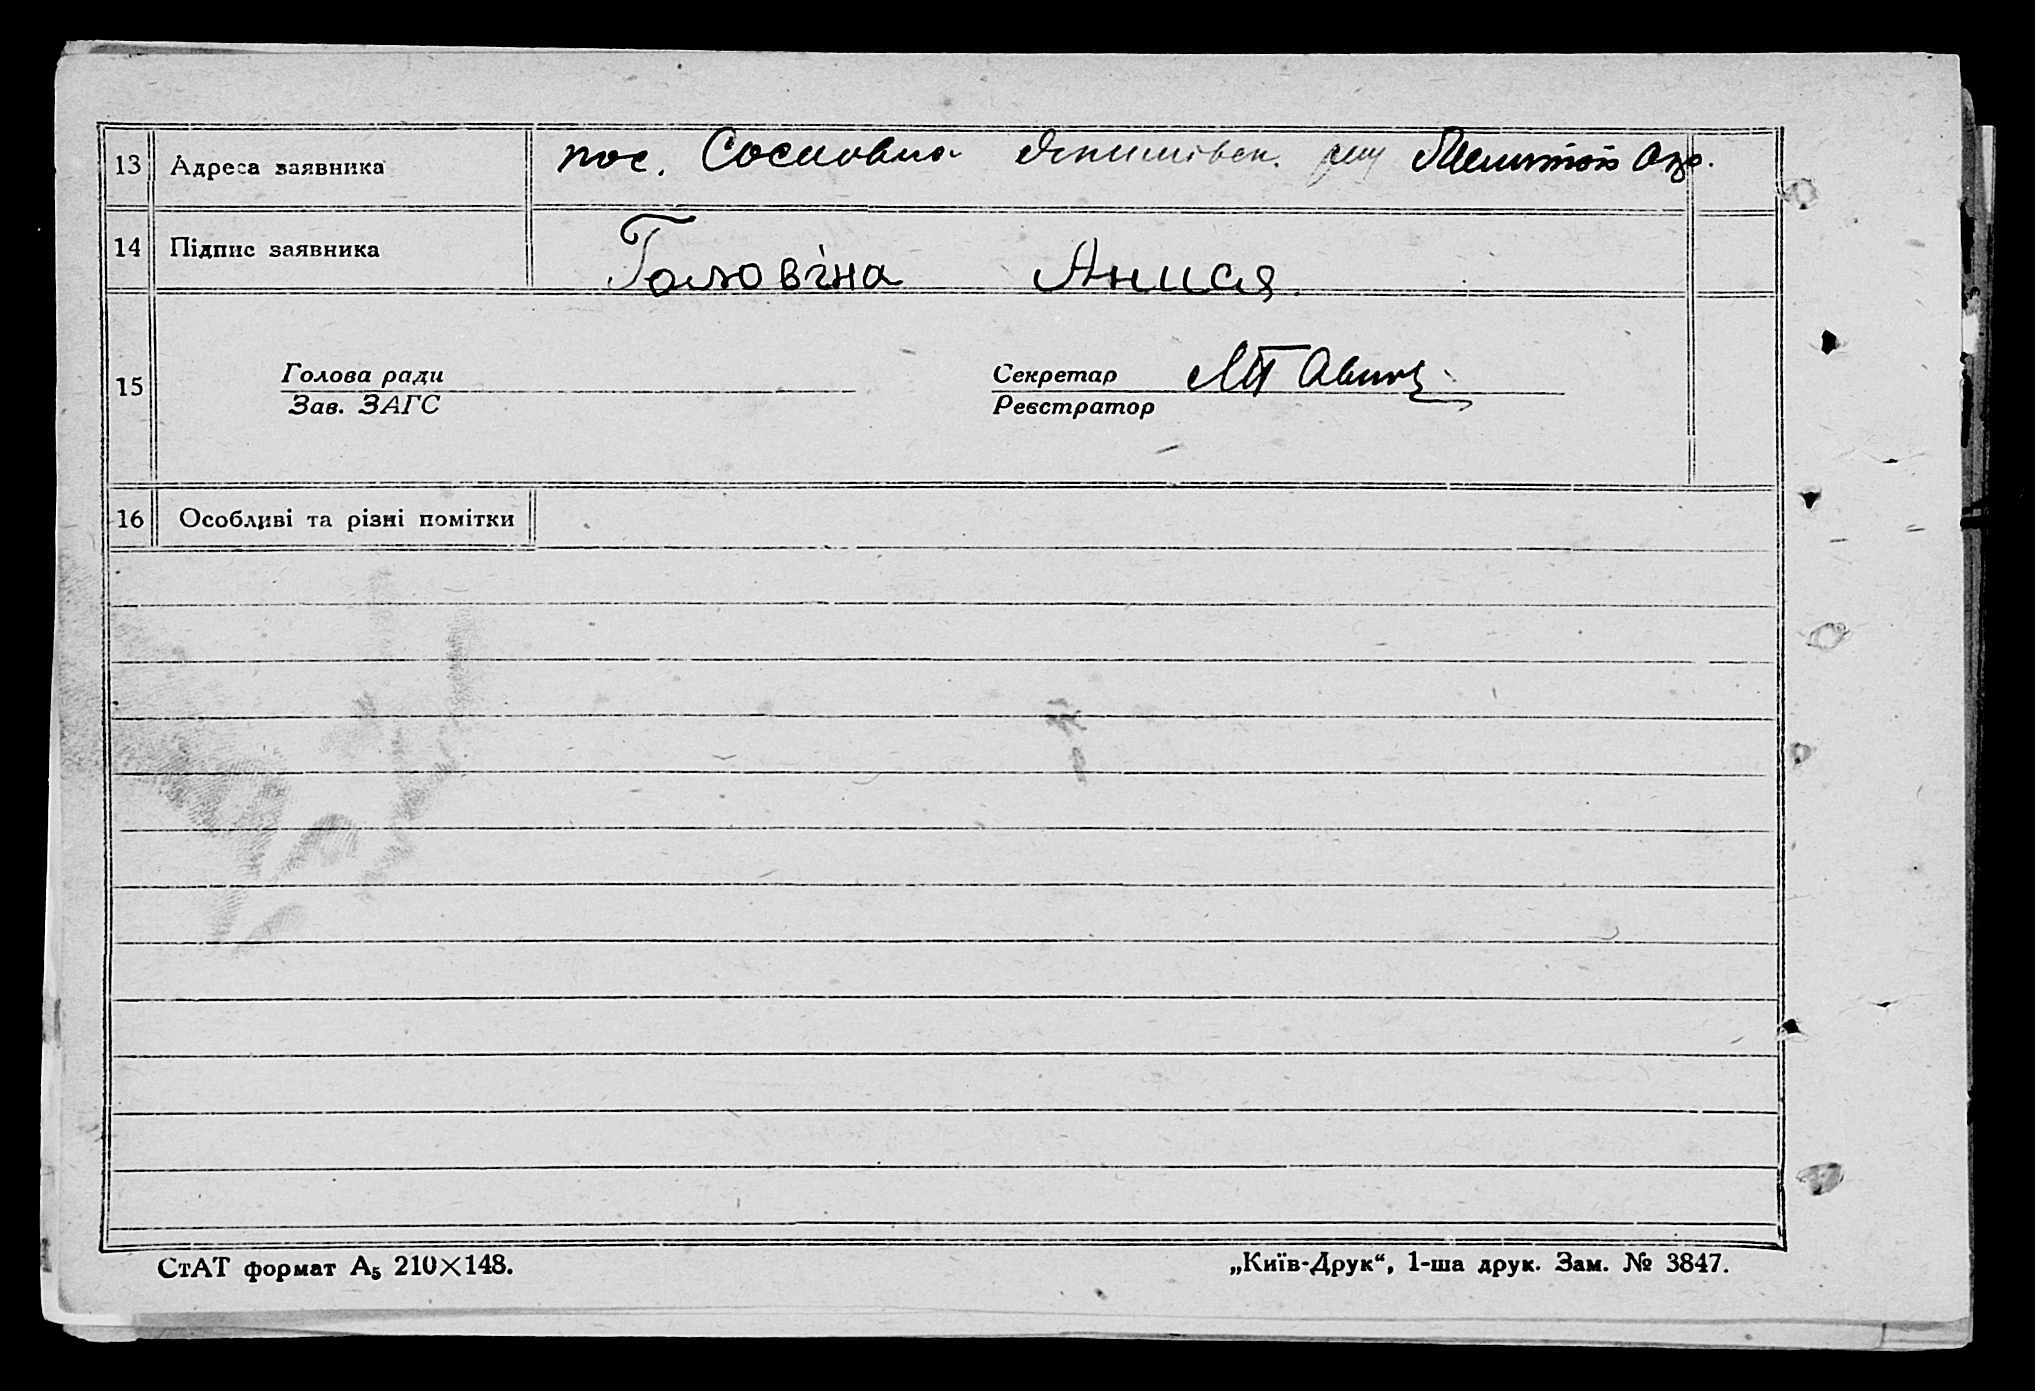 13 Адреса заявника пос. Сосновка
14 Підпис заявника Головіна Анися
15 Голова ради Секретар
Зав. ЗАГС Реєстратор
16 Особливі та різні помітки
СтАТ формат А₅ 210×148. „Київ-Друк“, 1-ша друк. Зам. № 3847.